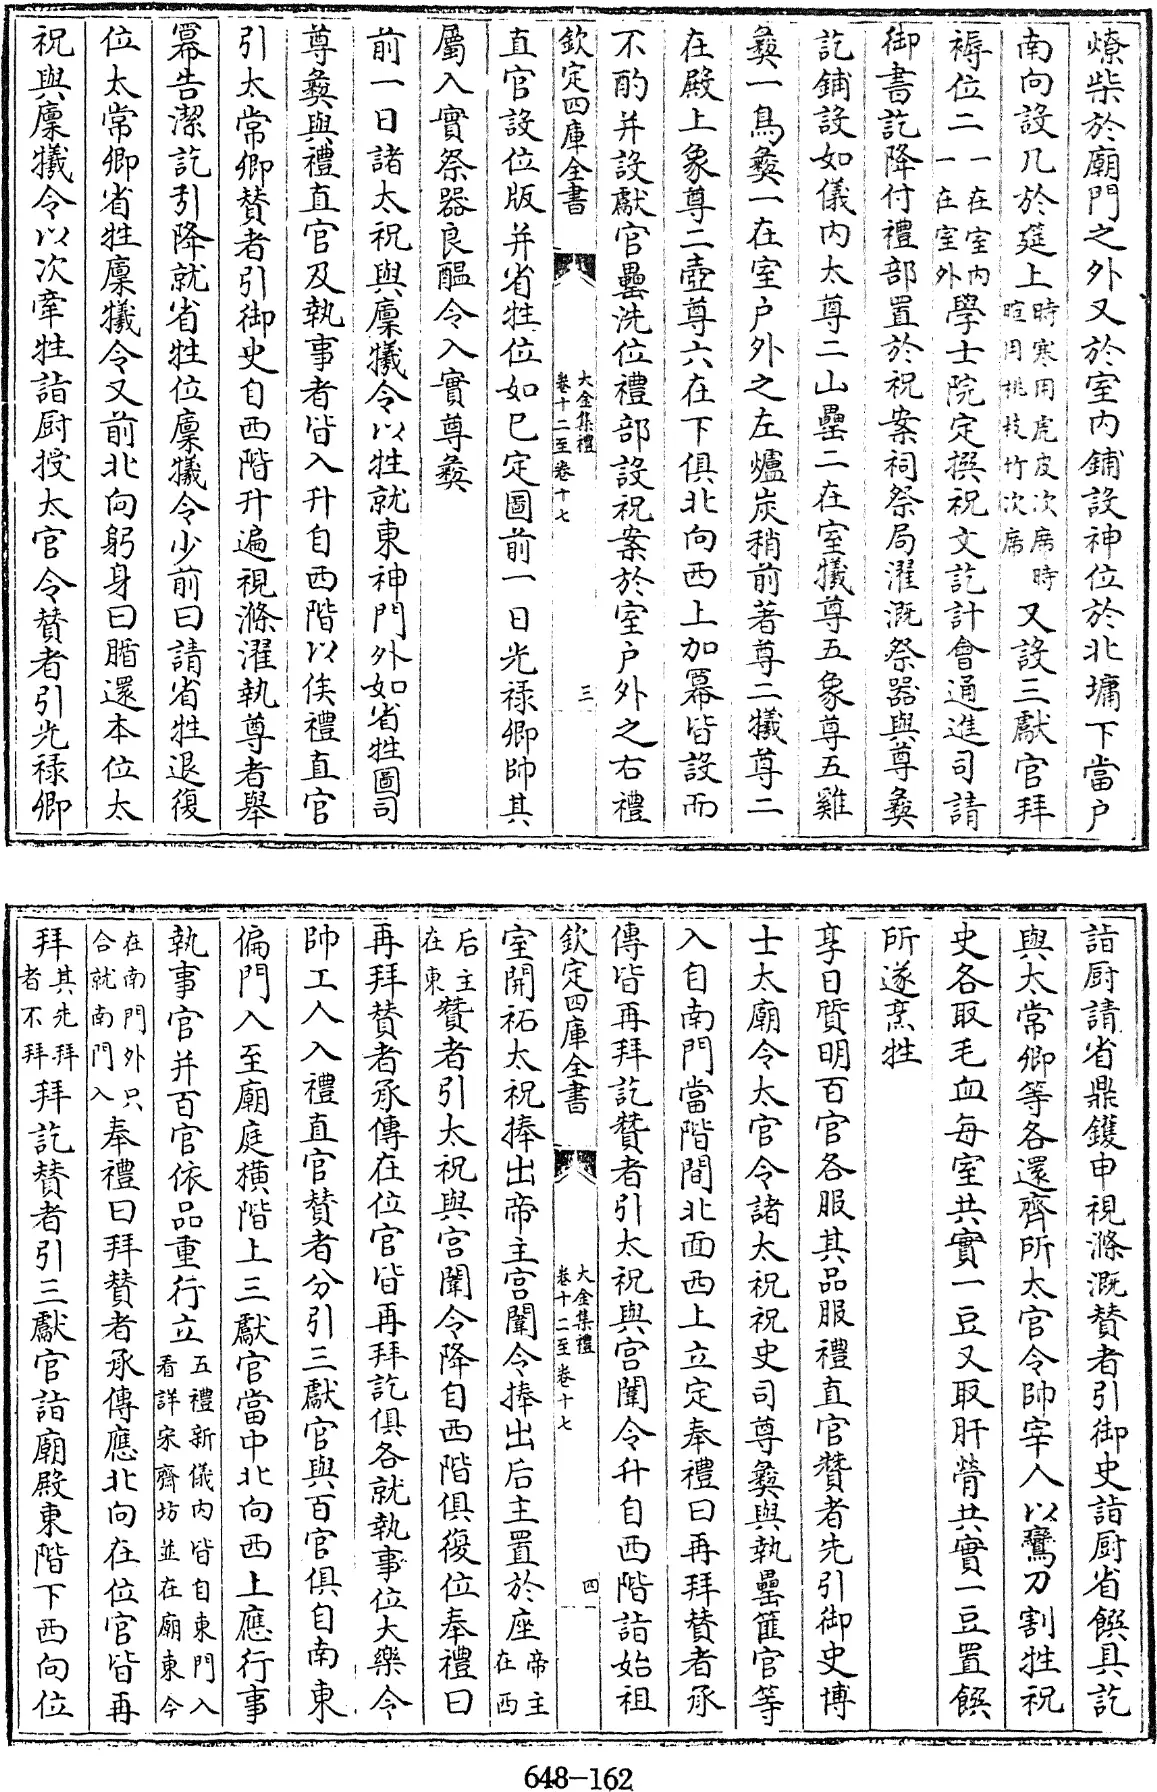 燎柴於廟門之外又於室内鋪設神位於北墉下當户
南向設几於筵上時寒用虎皮次席時暄用桃枝竹次席又設三獻官拜
褥位二一在室内一在室外學士院定撰祝文訖計會通進司請
御書訖降付禮部置於祝案祠祭局濯溉祭器與尊彝
訖鋪設如儀内太尊二山罍二在室犧尊五象尊五雞
彝一鳥彝一在室户外之左爐炭稍前著尊二犧尊二
在殿上象尊二壺尊六在下俱北向西上加冪皆設而
不酌并設獻官罍洗位禮部設祝案於室户外之右禮
欽定四庫全書 大金集禮卷十二至卷十七 三
直官設位版并省牲位如巳定圖前一日光禄卿帥其
屬入實祭器良醖令入實尊彝
前一日諸太祝與廩犧令以牲就東神門外如省牲圖司
尊彝與禮直官及執事者皆入升自西階以俟禮直官
引太常卿贊者引御史自西階升遍視滌濯執尊者舉
冪告潔訖引降就省牲位廩犧令少前曰請省牲退復
位太常卿省牲廩犧令又前北向躬身曰腯還本位太
祝與廩犧令以次牽牲詣厨授太官令贊者引光禄卿
詣厨請省鼎鑊申視滌溉贊者引御史詣厨省饌具訖
與太常卿等各還齊所太官令帥宰人以鸞刀割牲祝
史各取毛血每室共實一豆又取肝膋共實一豆置饌
所遂烹牲
享日質明百官各服其品服禮直官贊者先引御史博
士太廟令太官令諸太祝祝史司尊彝與執罍篚官等
入自南門當階間北面西上立定奉禮曰再拜贊者承
傳皆再拜訖贊者引太祝與宫闈令升自西階詣始祖
欽定四庫全書 大金集禮卷十二至卷十七 四
室開祏太祝捧出帝主宫闈令捧出后主置於座帝主在西
后主在東贊者引太祝與宫闈令降自西階俱復位奉禮曰
再拜贊者承傳在位官皆再拜訖俱各就執事位大樂令
帥工人入禮直官贊者分引三獻官與百官俱自南東
偏門入至廟庭横階上三獻官當中北向西上應行事
執事官并百官依品重行立五禮新儀内皆自東門入看詳宋齊坊並在廟東今
在南門外只合就南門入奉禮曰拜贊者承傳應北向在位官皆再
拜其先拜者不拜拜訖贊者引三獻官詣廟殿東階下西向位
648-162